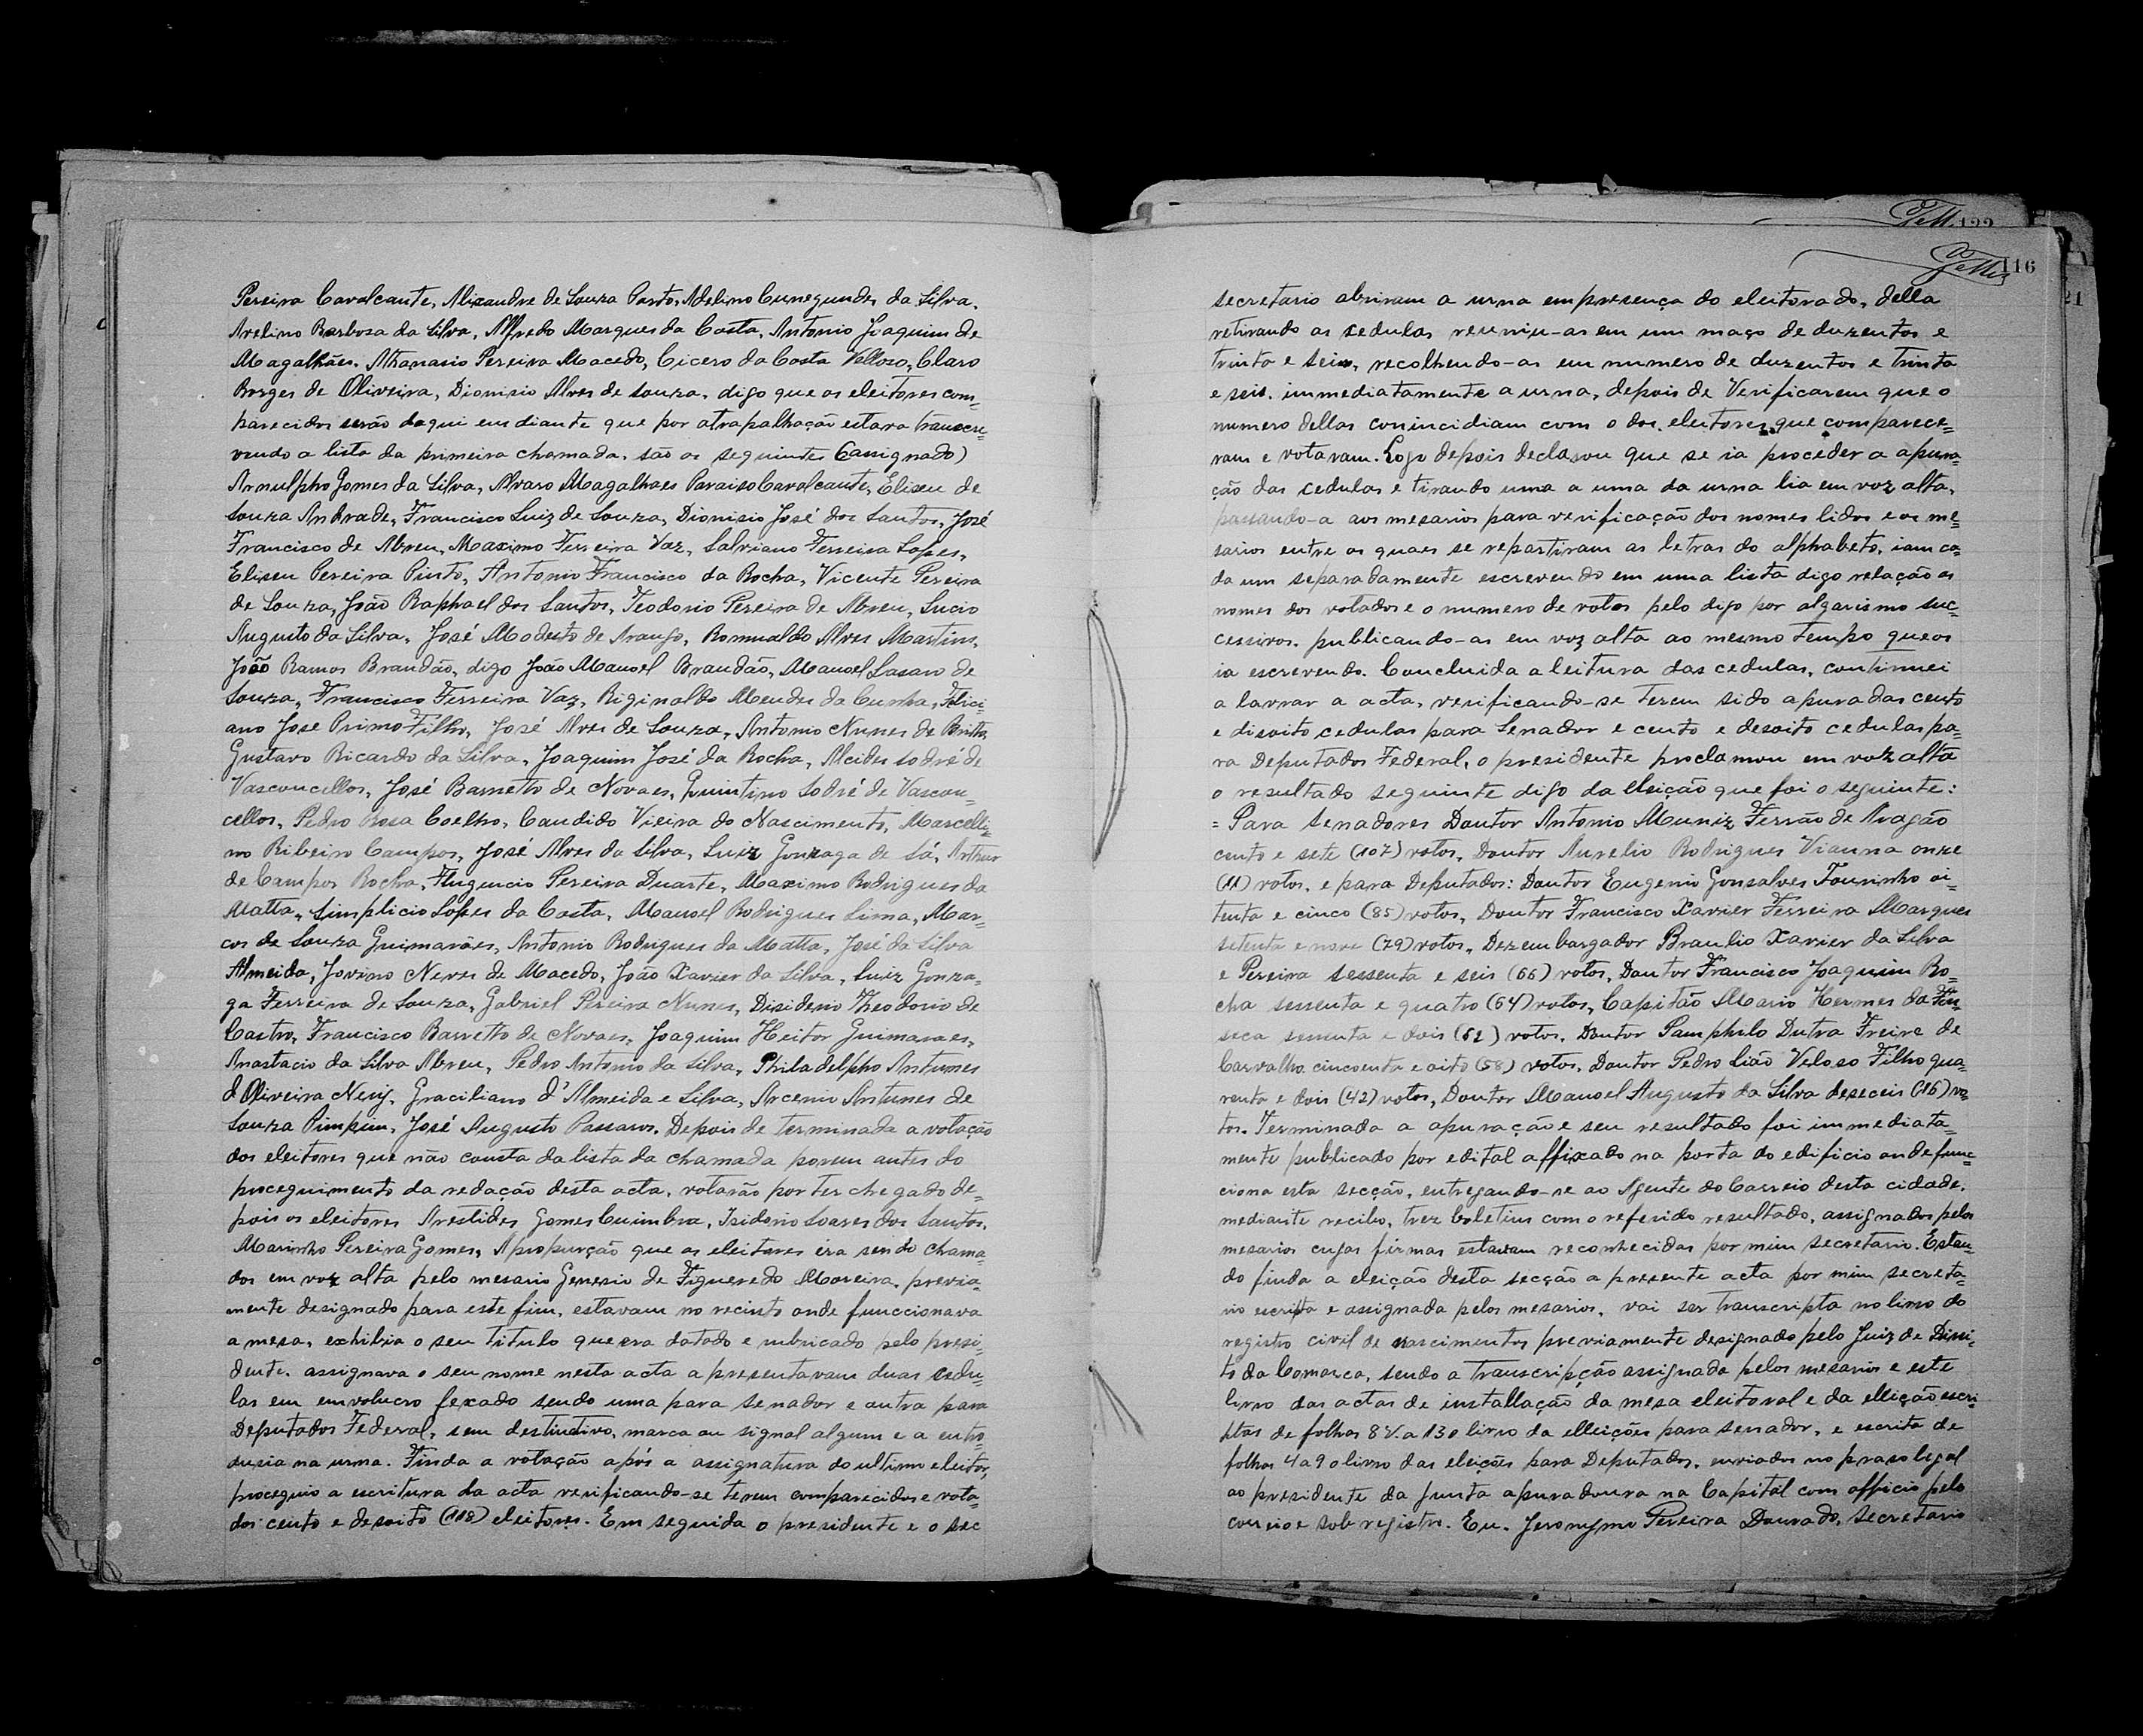 Pereira Cavalcante, Alixandre de Souza Porto, Adelino Cunegundes da Silva,
Avelino Barbosa da Silva, Alfredo Marques da Costa, Antonio Joaquim de
Magalhães, Athanasio Pereira Macedo, Cicero da Costa Velloso, Claro
Borges de Oliveira, Dionisio Alves de Souza, digo que os eleitores com=
parecidos serão daqui em diante que por atrapalhação estava transcre=
vendo a lista da primeira chamada, são os seguintes (assignado)
Arnulpho Gomes da Silva, Alvaro Magalhaes Paraiso Cavalcante, Eliseu de
Souza Andrade, Francisco Luiz de Souza, Dionisio José dos Santos, José
Francisco de Abreu, Maximo Ferreira Vaz, Salviano Ferreira Lopes,
Eliseu Pereira Pinto, Antonio Francisco da Rocha, Vicente Pereira
de Souza, João Raphael dos Santos, Teodorio Pereira de Abreu, Lucio
Augusto da Silva, José Modesto de Araujo, Romualdo Alves Martins,
João Ramos Brandão, digo João Manoel Brandão, Manoel Lasaro de
Souza, Francisco Ferreira Vaz, Riginaldo Mendes da Cunha, Felici
ano Jose Primo Filho, José Alves de Souza, Antonio Nunes de Britto,
Gustavo Ricardo da Silva, Joaquim José da Rocha, Alcides Sodré de
Vasconcellos, José Barretto de Novaes, Quintino Sodré de Vascon=
cellos, Pedro Rosa Coelho, Candido Vieira do Nascimento, Marcelli=
no Ribeiro Campos, José Alves da Silva, Luiz Gonzaga de Sá, Arthur
de Campos Rocha, Flugencio Pereira Duarte, Maximo Rodrigues da
Matta, Simplicio Lopes da Costa, Manoel Rodrigues Lima, Mar=
cos de Souza Guimarães, Antonio Rodrigues da Matta, José da Silva
Almeida, Jovino Neves de Macedo, João Xavier da Silva, Luiz Gonza=
ga Ferreira de Souza, Gabriel Pereira Nunes, Disiderio Theodorio de
Castro, Francisco Barretto de Novaes, Joaquim Heitor Guimaraes,
Anastacio da Silva Abreu, Pedro Antonio da Silva, Philadelpho Antunes
d'Oliveira Nery, Graciliano d'Almeida e Silva, Arcenio Antunes de
Souza Pimpim, José Augusto Passaros, Depois de terminada a votação
dos eleitores que não consta da lista da chamada porem antes do
proceguimento da redação desta acta, votarão por ter chegado de=
pois os eleitores Arestides Gomes Cuimbra, Isidorio Soares dos Santos,
Marinho Pereira Gomes, Aproporção que os eleitores era sendo chama=
dos em voz alta pelo mesario Genesio de Figueredo Moreira, previa=
mente designado para este fim, estavam no recinto onde funccionava
a mesa, exhibia o seu titulo que era datado e rubricado pelo presi=
dente, assignava o seu nome nesta acta apresentavam duas sedu=
las em envolucro fexado sendo uma para senador e outra para
Deputados Federal, sem destinctivo, marca ou signal algum e a entro=
dusia na urna. Finda a votação após a assignatura do ultimo eleitor,
proceguio a escritura da acta verificando-se terem comparecidos e vota=
dos cento e desoito (118) eleitores. Em seguida o presidente e o sec
116
secretario abriram a urna em presença do eleitorado, della
retirando as sedulas reuniu-as em um maço de duzentos e
trinta e seis, recolhendo-as em numero de duzentos e trinta
e seis, immediatamente a urna, depois de verificarem que o
numero dellas conincidiam com o dos eleitores que comparece=
ram e votaram. Logo depois declarou que se ia proceder a apura=
ção das cedulas e tirando uma a uma da urna lia em voz alta,
passando-a aos mesarios para verificação dos nomes lidos e os me=
sarios entre os quaes se repartiram as letras do alphabeto, iam ca=
da um separadamente escrevendo em uma lista digo relação os
nomes dos votados e o numero de votos pelo digo por algarismo suc=
cessivos, publicando-as em voz alta ao mesmo tempo que os
ia escrevendo. Concluida a leitura das cedulas, continuei
a lavrar a acta, verificando-se terem sido apuradas cento
e disoito cedulas para Senador e cento e desoito cedulas pa=
ra Deputados Federal, o presidente proclamou em voz alta
o resultado seguinte digo da elleição que foi o seguinte:
= Para senadores Doutor Antonio Muniz Ferrão de Aragão
cento e sete (107) votos, Doutor Aurelio Rodrigues Vianna onze
(11) votos, e para Deputados: Doutor Eugenio Gonsalves Tourinho oi=
tenta e cinco (85) votos, Doutor Francisco Xavier Ferreira Marques
setenta e nove (79) votos, Dezembargador Braulio Xavier da Silva
e Pereira sessenta e seis (66) votos, Doutor Francisco Joaquim Ro=
cha sessenta e quatro (64) votos, Capitão Mario Hermes da Fon=
seca sessenta e dois (62) votos, Doutor Pamphilo Dutra Freire de
Carvalho cincoenta e oito (58) votos, Doutor Pedro Lião Veloso Filho qua=
renta e dois (42) votos, Doutor Manoel Augusto da Silva deseceis (16) vo=
tos. Terminada a apuração e seu resultado foi immediata=
mente publicado por edital affixado na porta do edificio onde func=
ciona esta secção, entregando-se ao Agente do Correio desta cidade,
mediante recibo, trez boletins com o referido resultado, assignados pelos
mesarios cujas firmas estavam reconhecidas por mim secretario. Estan=
do finda a eleição desta secção a presente acta por mim secreta=
rio escripta e assignada pelos mesarios, vai ser transcripta no livro do
registro civil de nascimentos previamente designado pelo Juiz de Direi=
to da Comarca, sendo a transcripção assignada pelos mesarios e este
livro das actas de installação da mesa eleitoral e da elleição escri=
ptas de folhas 8 V. a 13 o livro da elleições para senador, e escrita de
folhas 4 a 9 o livro das eleições para Deputados, enviados no praso legal
ao presidente da Junta apuradoura na Capital com officio pelo
correio e sob registro. Eu, Jeronymo Pereira Dourado, Secretario